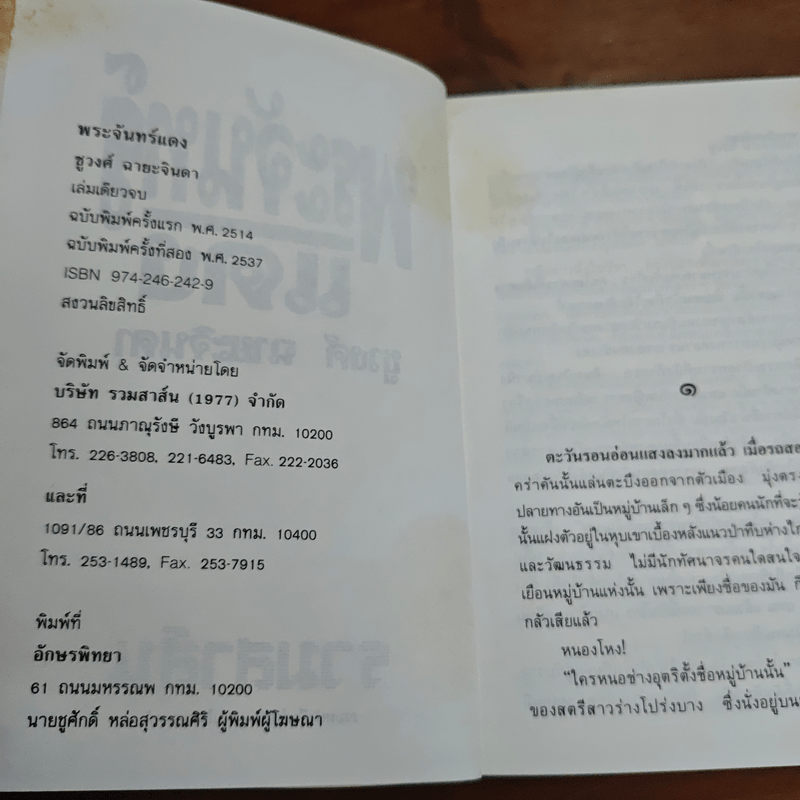 พระจันทร์แดง
ชูวงศ์ ฉายะจินดา
เล่มเดียวจบ
ฉบับพิมพ์ครั้งแรก พ.ศ. 2514
ฉบับพิมพ์ครั้งที่สอง พ.ศ. 2537
ISBN 974-246-242-9
สงวนลิขสิทธิ์
จัดพิมพ์ & จัดจำหน่ายโดย
บริษัท รวมสาส์น (1977) จำกัด
864 ถนนภาณุรังษี วังบูรพา กทม. 10200
โทร. 226-3808, 221-6483, Fax. 222-2036
และที่
1091/86 ถนนเพชรบุรี 33 กทม. 10400
โทร. 253-1489, Fax. 253-7915
พิมพ์ที่
อักษรพิทยา
61 ถนนมหรรณพ กทม. 10200
นายชูศักดิ์ หล่อสุวรรณศิริ ผู้พิมพ์ผู้โฆษณา
๑
ตะวันรอนอ่อนแสงลงมากแล้ว เมื่อรถสอ
คร่าคันนั้นแล่นตะบึงออกจากตัวเมือง มุ่งตรง
ปลายทางอันเป็นหมู่บ้านเล็ก ๆ ซึ่งน้อยคนนักที่จะ
นั้นแฝงตัวอยู่ในหุบเขาเบื้องหลังแนวป่าทึบห่างไก
และวัฒนธรรม ไม่มีนักทัศนาจรคนใดสนใจ
เยือนหมู่บ้านแห่งนั้น เพราะเพียงชื่อของมัน ก็
กลัวเสียแล้ว
หนองโหง!
“ใครหนอช่างอุตริตั้งชื่อหมู่บ้านนั้น”
ของสตรีสาวร่างโปร่งบาง ซึ่งนั่งอยู่บน